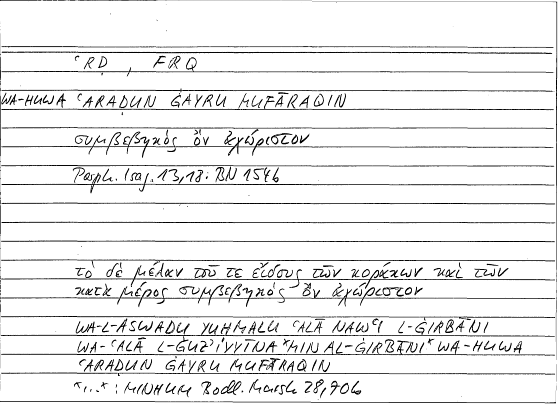 ʿRḌ , FRQ
WA-HUWA ʿARAḌUN ĠAYRU MUFĀRAQIN
συμβεβηκός ὂν ἀχώριστον
Porph. Isag. 13,18: BN 154b
τὸ δὲ μέλαν τοῦ τε εἴδους τῶν κοράκων καὶ τῶν
κατὰ μέρος συμβεβηκὸς ὂν ἀχώριστον
WA-L-ASWADU YUḤMALU ʿALĀ NAWʿI L-ĠIRBĀNI
WA-ʿALĀ L-ǦUZʾIYYĪNA *MIN AL-ĠIRBĀNI* WA-HUWA
ʿARAḌUN ĠAYRU MUFĀRAQIN
*...* : MINHUM Bodl. Marsh 28,90b